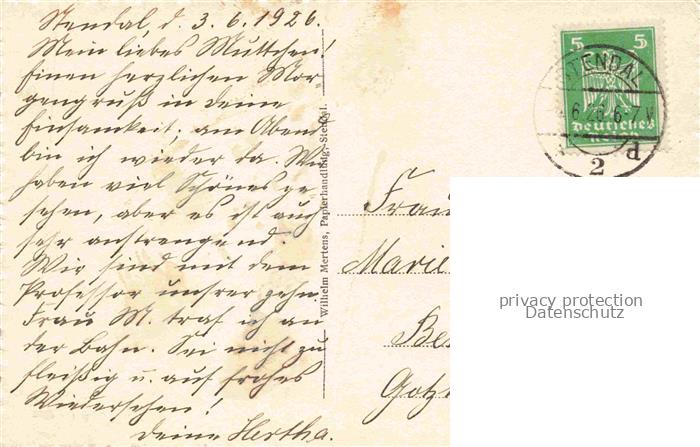 Stendal, d. 3.6.1926.
Mein liebes Muttchen!
Einen herzlichen Mor-
gengruß in deine
Einsamkeit; am Abend
bin ich wieder da. Wir
haben viel Schönes ge-
sehen, aber es ist auch
sehr anstrengend.
Wir sind mit dem
Professor unsrer zehn.
Frau M. traf ich an
der Bahn. Sei nicht zu
fleißig u. auf frohes
Wiedersehen!
Deine Hertha.
Wilhelm Mertens, Papierhandlung, Stendal.
5 5
Deutsches
STENDAL
6.26.6-7V
2 d
Frau
Marie
Gotz
privacy protection
Datenschutz